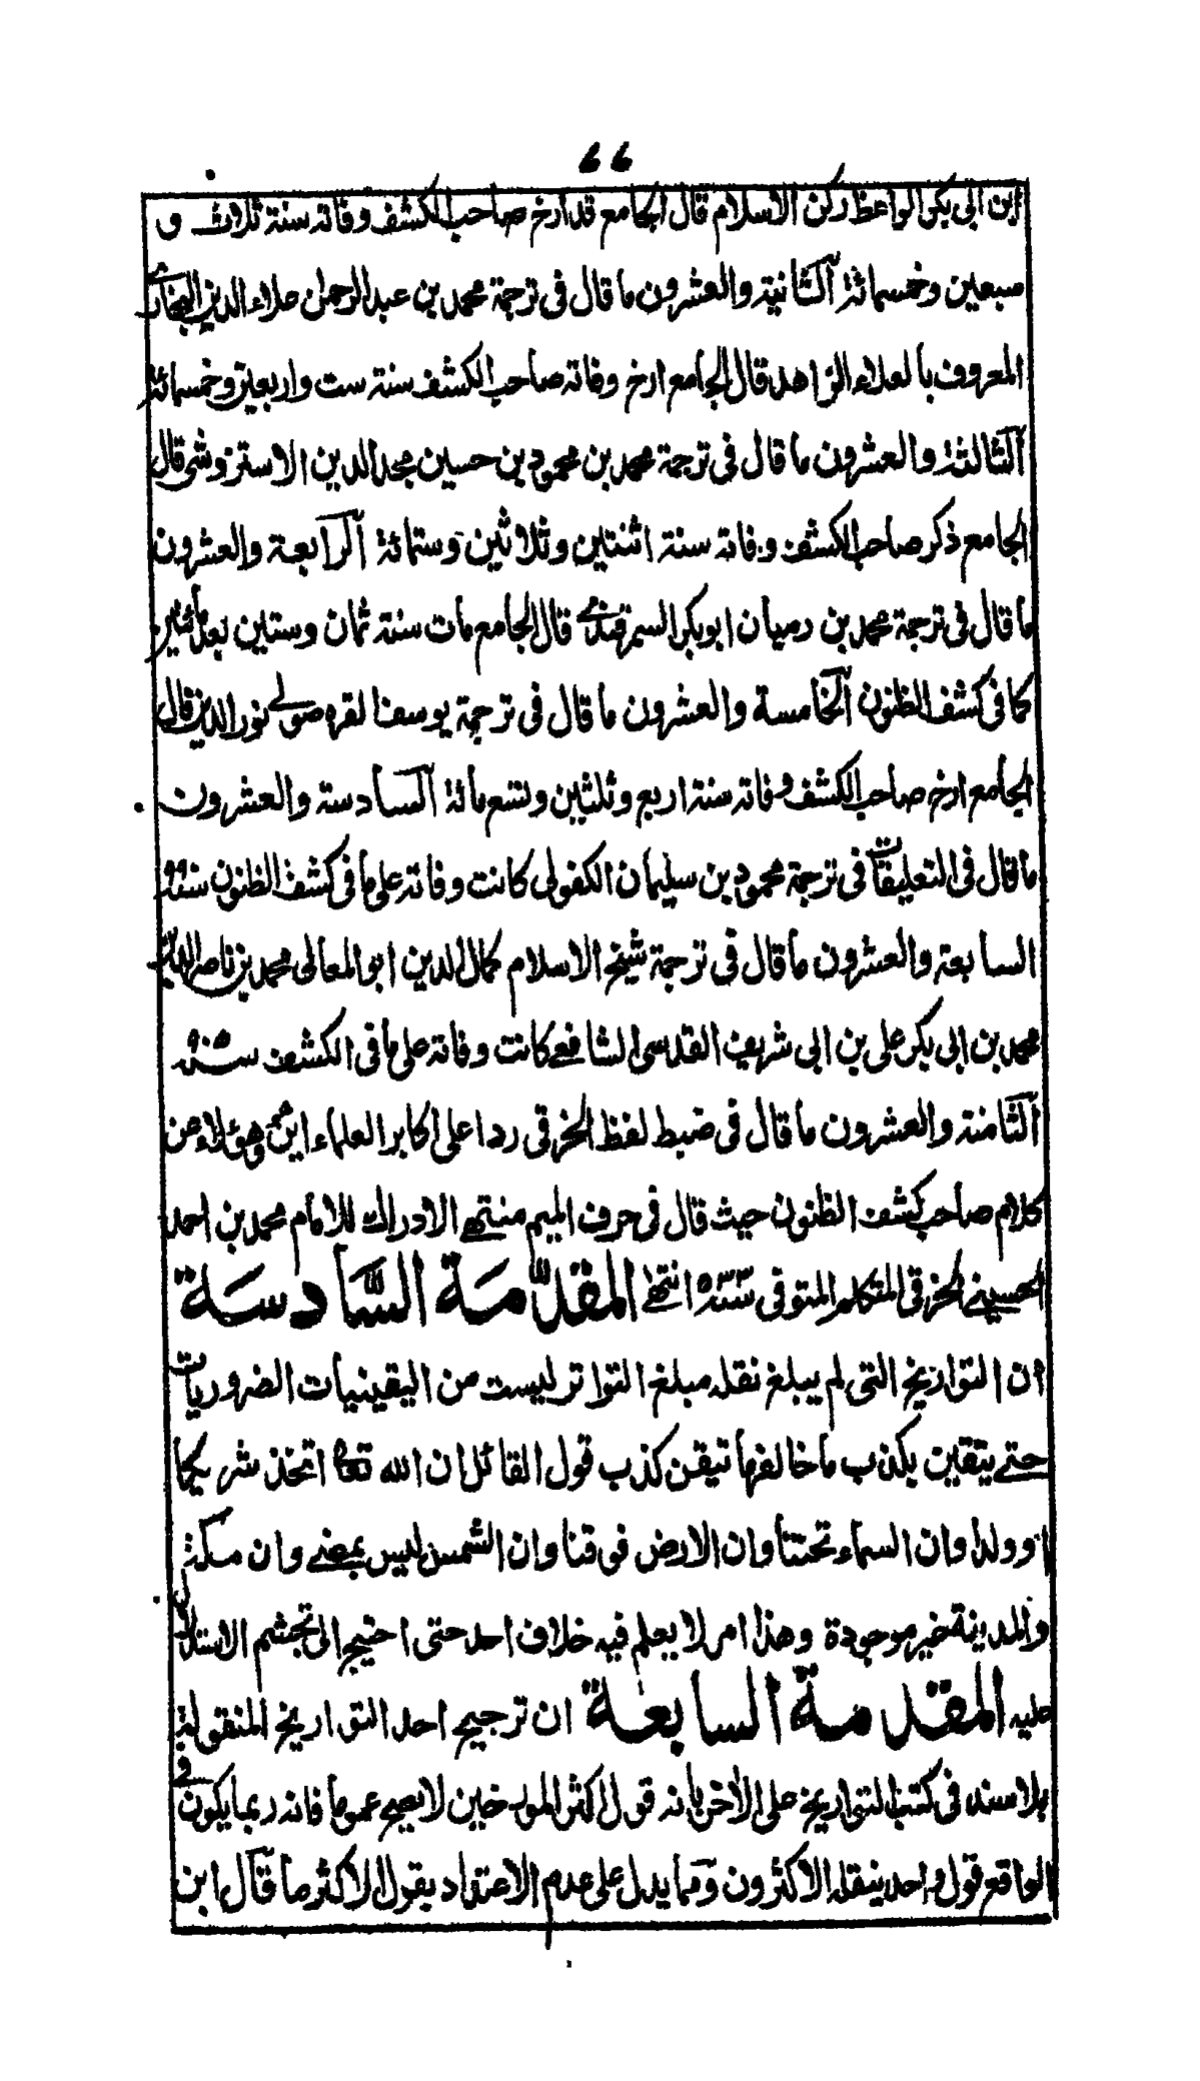 ٦٦
ابن ابى بكر الواعظ ركن الاسلام قال الجامع قد ارخ صاحب الكشف وفاته سنة ثلاث و
سبعين وخمسمائة الثانية والعشرون ما قال فى ترجمة محمد بن عبد الرحمن علاء الدين البخارى
المعروف بالعلاء الزاهد قال الجامع ارخ وفاته صاحب الكشف سنة ست واربعين وخمسمائة
الثالثة والعشرون ما قال فى ترجمة محمد بن محمود بن حسين مجد الدين الاستروشنى قال
الجامع ذكر صاحب الكشف وفاته سنة اثنتين وثلاثين وستمائة الرابعة والعشرون
ما قال فى ترجمة محمد بن رمیان ابو بكر السمرقندى قال الجامع مات سنة ثمان وستين بعد مأتين
كما فى كشف الظنون الخامسة والعشرون ما قال فى ترجمة يوسف القره صولى نور الدين قال
الجامع ارخ صاحب الكشف وفاته سنة اربع وثلثين وتسعمائة السادسة والعشرون
ما قال فى التعليقات فى ترجمة محمود بن سليمان الكفوى كانت وفاته على ما فى كشف الظنون سنة
السابعة والعشرون ما قال فى ترجمة شيخ الاسلام كمال الدين ابو المعالى محمد بن ناصر الدين
محمد بن ابى بكر على بن ابى شريف القدسى الشافعى كانت وفاته على ما فى الكشف سنة
الثامنة والعشرون ما قال فى ضبط لفظ الخرقى ردا على اكابر العلماء اين هم وهؤلاء من
كلام صاحب كشف الظنون حيث قال فى حرف الميم منتهى الادراك للامام محمد بن احمد
الحسينى الخرقى المتكلم المتوفى سنة ٥٣٣ انتهى المقدمة السادسة
ان التواريخ التى لم يبلغ نقله مبلغ التواتر ليست من اليقينيات الضروريات
حتى يتقين بكذب ما خالفها تيقن كذب قول القائل ان الله تعا اتخذ شريكا
او ولدا وان السماء تحتنا وان الارض فوقنا وان الشمس ليس بمضئ وان مكة
والمدينة غير موجودة وهذا امر لا يعلم فيه خلاف احد حتى احتيج الى تجشم الاستدلال
عليه المقدمة السابعة ان ترجيح احد التواريخ المنقولة
بلا سند فى كتب التواريخ على الاخر بانه قول اكثر المورخين لا يصح عموما فانه ربما يكون فى
الواقع قول واحد ينقله الاكثرون ومما يدل على عدم الاعتداد بقول الاكثر ما قال ابن